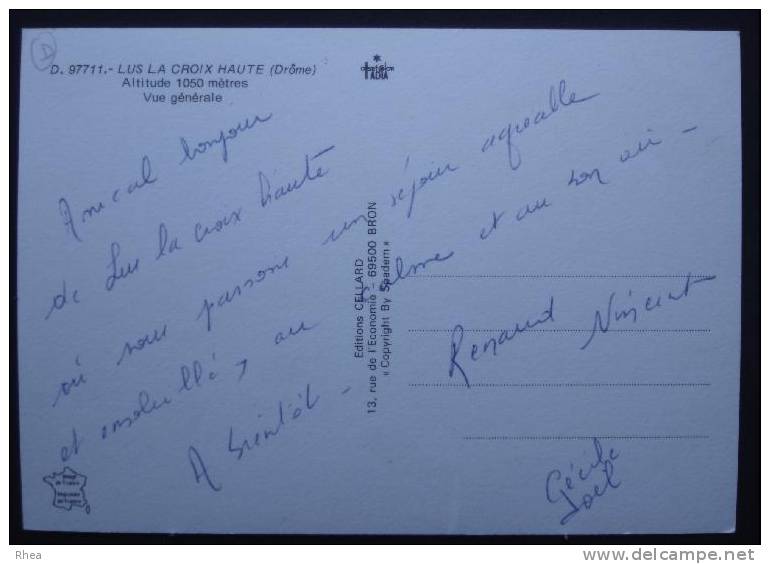 D. 97711.- LUS LA CROIX HAUTE (Drôme)
Altitude 1050 mètres
Vue générale
Amical bonjour
de Lus la croix haute
où nous passons un séjour agréable
et ensoleillé, au calme et au bon air -
A bientôt -
Renaud Vincent
Cécile
Joël
Editions CELLARD
13, rue de l'Economie - 69500 BRON
« Copyright By Spadem »
D
Rhea
www.delcampe.net